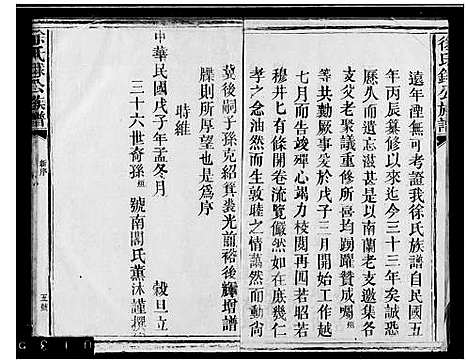 徐氏錦公族譜
遠年湮無可考證我徐氏族譜自民國五
年丙辰纂修以來迄今三十三年矣誠恐
歷久而遺忘滋甚是以南蘭老支邀集各
支父老聚議重修所喜均踴躍贊成囑
等共勷厥事爰於戊子三月開始工作越
七月而告竣殫心竭力校閱再四若昭若
穆井七有條開卷流覽儼然如在庶幾仁
孝之念油然而生敦睦之情藹然而動尚
冀後嗣子孫克紹箕裘光前裕後輝增譜
牒則所厚望也是為序
時維
中華民國戊子年孟冬月 穀旦立
三十六世奇孫 號南閣氏薰沐謹撰
徐氏錦公族譜
新序
五